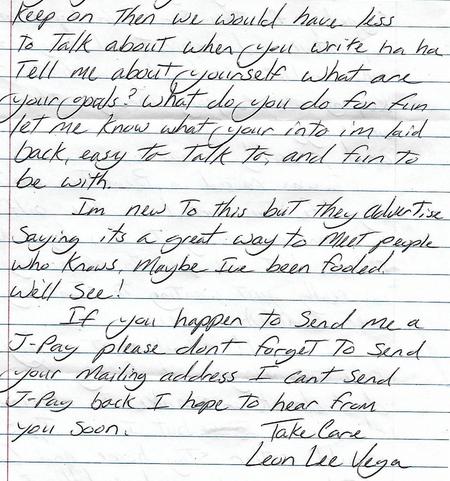 Keep on Then we would have less
To Talk about when you write ha ha
Tell me about yourself what are
your goals? What do you do for fun
let me know what your into im laid
back, easy to Talk to, and fun to
be with.
Im new To this but they advertise
Saying its a great way to Meet people
who knows, Maybe Ive been fooled.
We'll See!
If you happen to Send me a
J-Pay please dont forget To Send
your Mailing address I cant Send
J-Pay back I hope to hear from
you soon.
Take Care
Leon Lee Vega